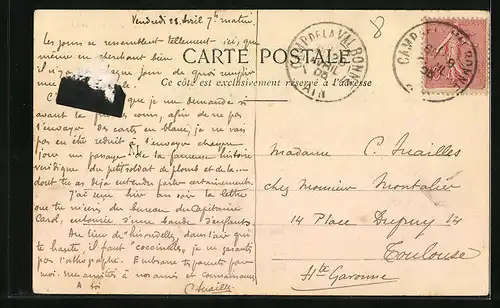 Vendredi 28 Avril 7h matin
Les jours se ressemblent tellement ici, que
même en cherchant bien
il n'y a chaque jour de quoi remplir
une
que je me demande si
avant le
l'envoyer des cartes en blanc, je ne vais
pas en être réduit à t'envoyer chaque
jour un passage de la fameuse histoire
véridique du petit soldat de plomb et de la...
dont tu as déjà entendu parler certainement.
J'ai reçu hier au soir la lettre
que tu m'écris du bureau du Capitaine
Carol, entourée d'une bande d'enfants.
Au lieu de "hirondelles" dans l'air qui
te hante, il faut "coccinelles", je ne garantis
pas l'orthographe. Embrasse
moi. mes amitiés à nos amis et connaissances
A toi
C. Mailles
8
CARTE POSTALE
Ce côté est exclusivement réservé à l'adresse
CAMP DE LA VALBONNE
AIN
CAMP DE LA VALBONNE
Madame C. Mailles
chez Monsieur Montalier
14 Place Dupuy 14
Toulouse
Hte Garonne